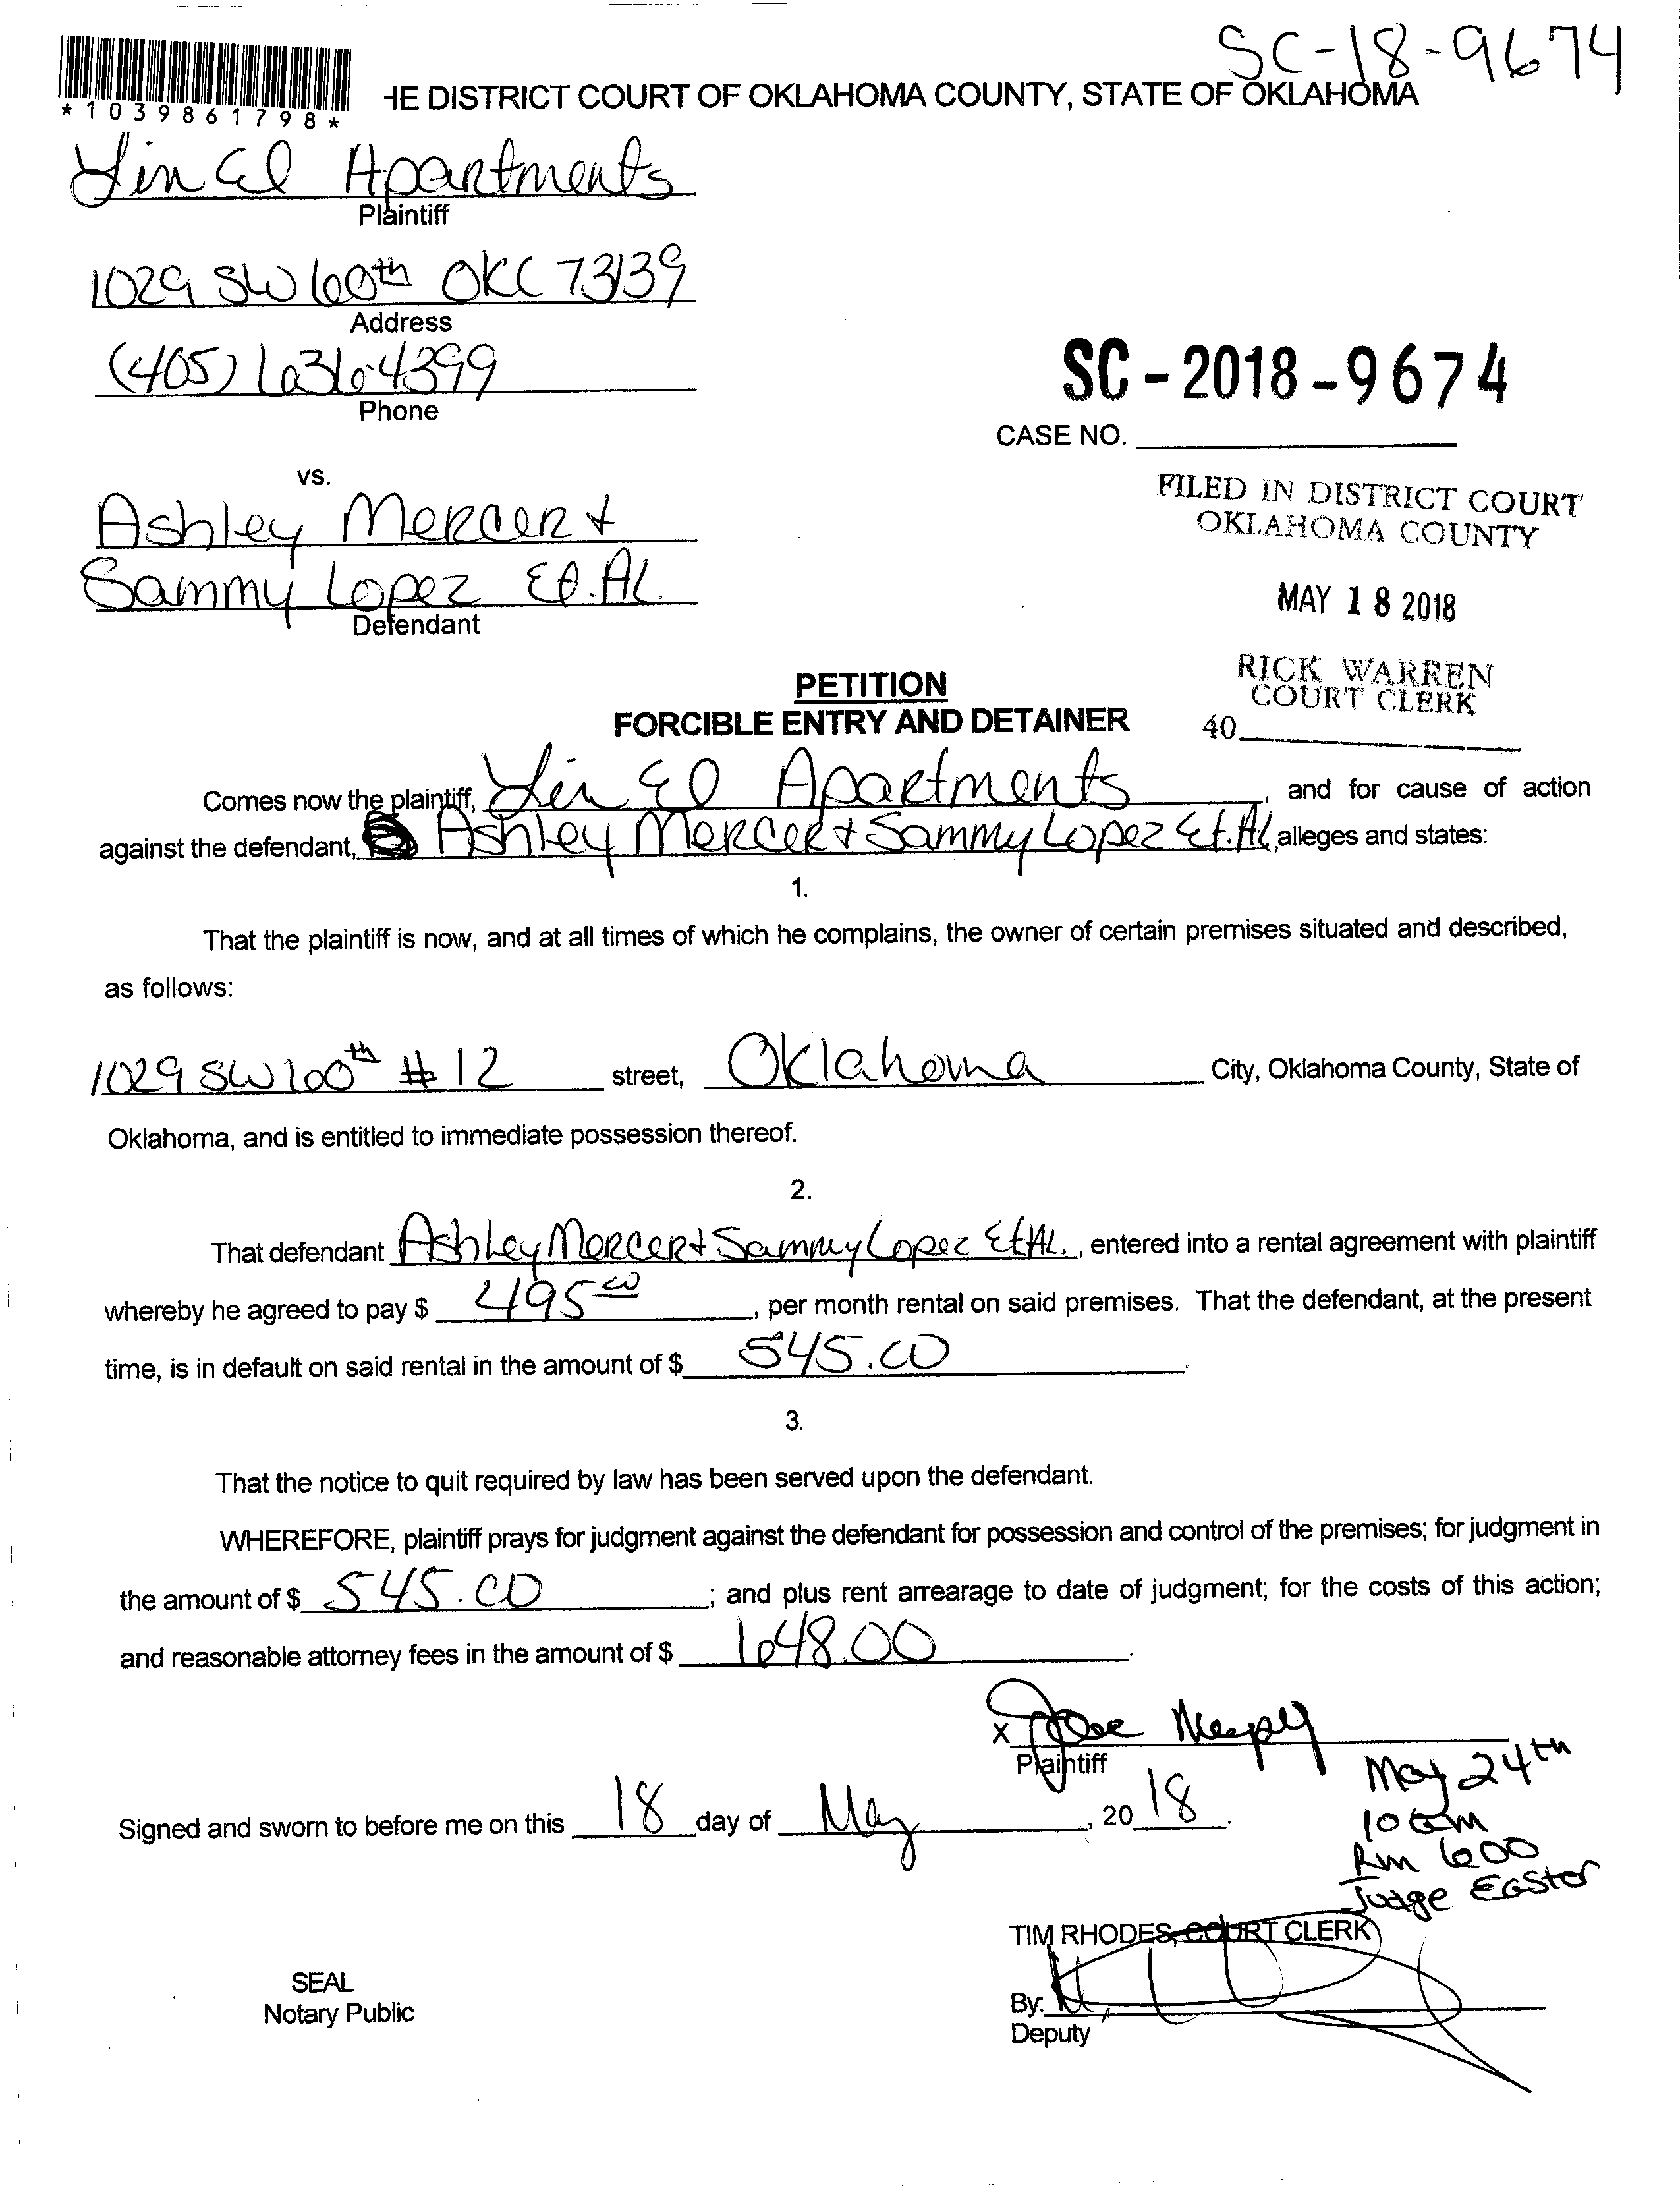 SC-18-9674
*1039861798*
HE DISTRICT COURT OF OKLAHOMA COUNTY, STATE OF OKLAHOMA
Lin El Apartments
Plaintiff
1029 SW 60th OKC 73139
Address
(405) 636-4399
Phone
SC-2018-9674
CASE NO.
vs.
Ashley Mercer +
Sammy Lopez Et. AL.
Defendant
FILED IN DISTRICT COURT
OKLAHOMA COUNTY
MAY 18 2018
RICK WARREN
COURT CLERK
40
PETITION
FORCIBLE ENTRY AND DETAINER
Comes now the plaintiff, Lin El Apartments, and for cause of action
against the defendant, Ashley Mercer + Sammy Lopez Et. AL, alleges and states:
1.
That the plaintiff is now, and at all times of which he complains, the owner of certain premises situated and described,
as follows:
1029 SW 60th #12 street, Oklahoma City, Oklahoma County, State of
Oklahoma, and is entitled to immediate possession thereof.
2.
That defendant Ashley Mercer + Sammy Lopez Et AL., entered into a rental agreement with plaintiff
whereby he agreed to pay $ 495 00, per month rental on said premises. That the defendant, at the present
time, is in default on said rental in the amount of $ 545.00.
3.
That the notice to quit required by law has been served upon the defendant.
WHEREFORE, plaintiff prays for judgment against the defendant for possession and control of the premises; for judgment in
the amount of $ 545.00; and plus rent arrearage to date of judgment; for the costs of this action;
and reasonable attorney fees in the amount of $ 648.00.
X
Plaintiff
Signed and sworn to before me on this 18 day of May, 20 18.
May 24th
10 am
Rm 600
Judge Easter
TIM RHODES, COURT CLERK
SEAL
Notary Public
By:
Deputy